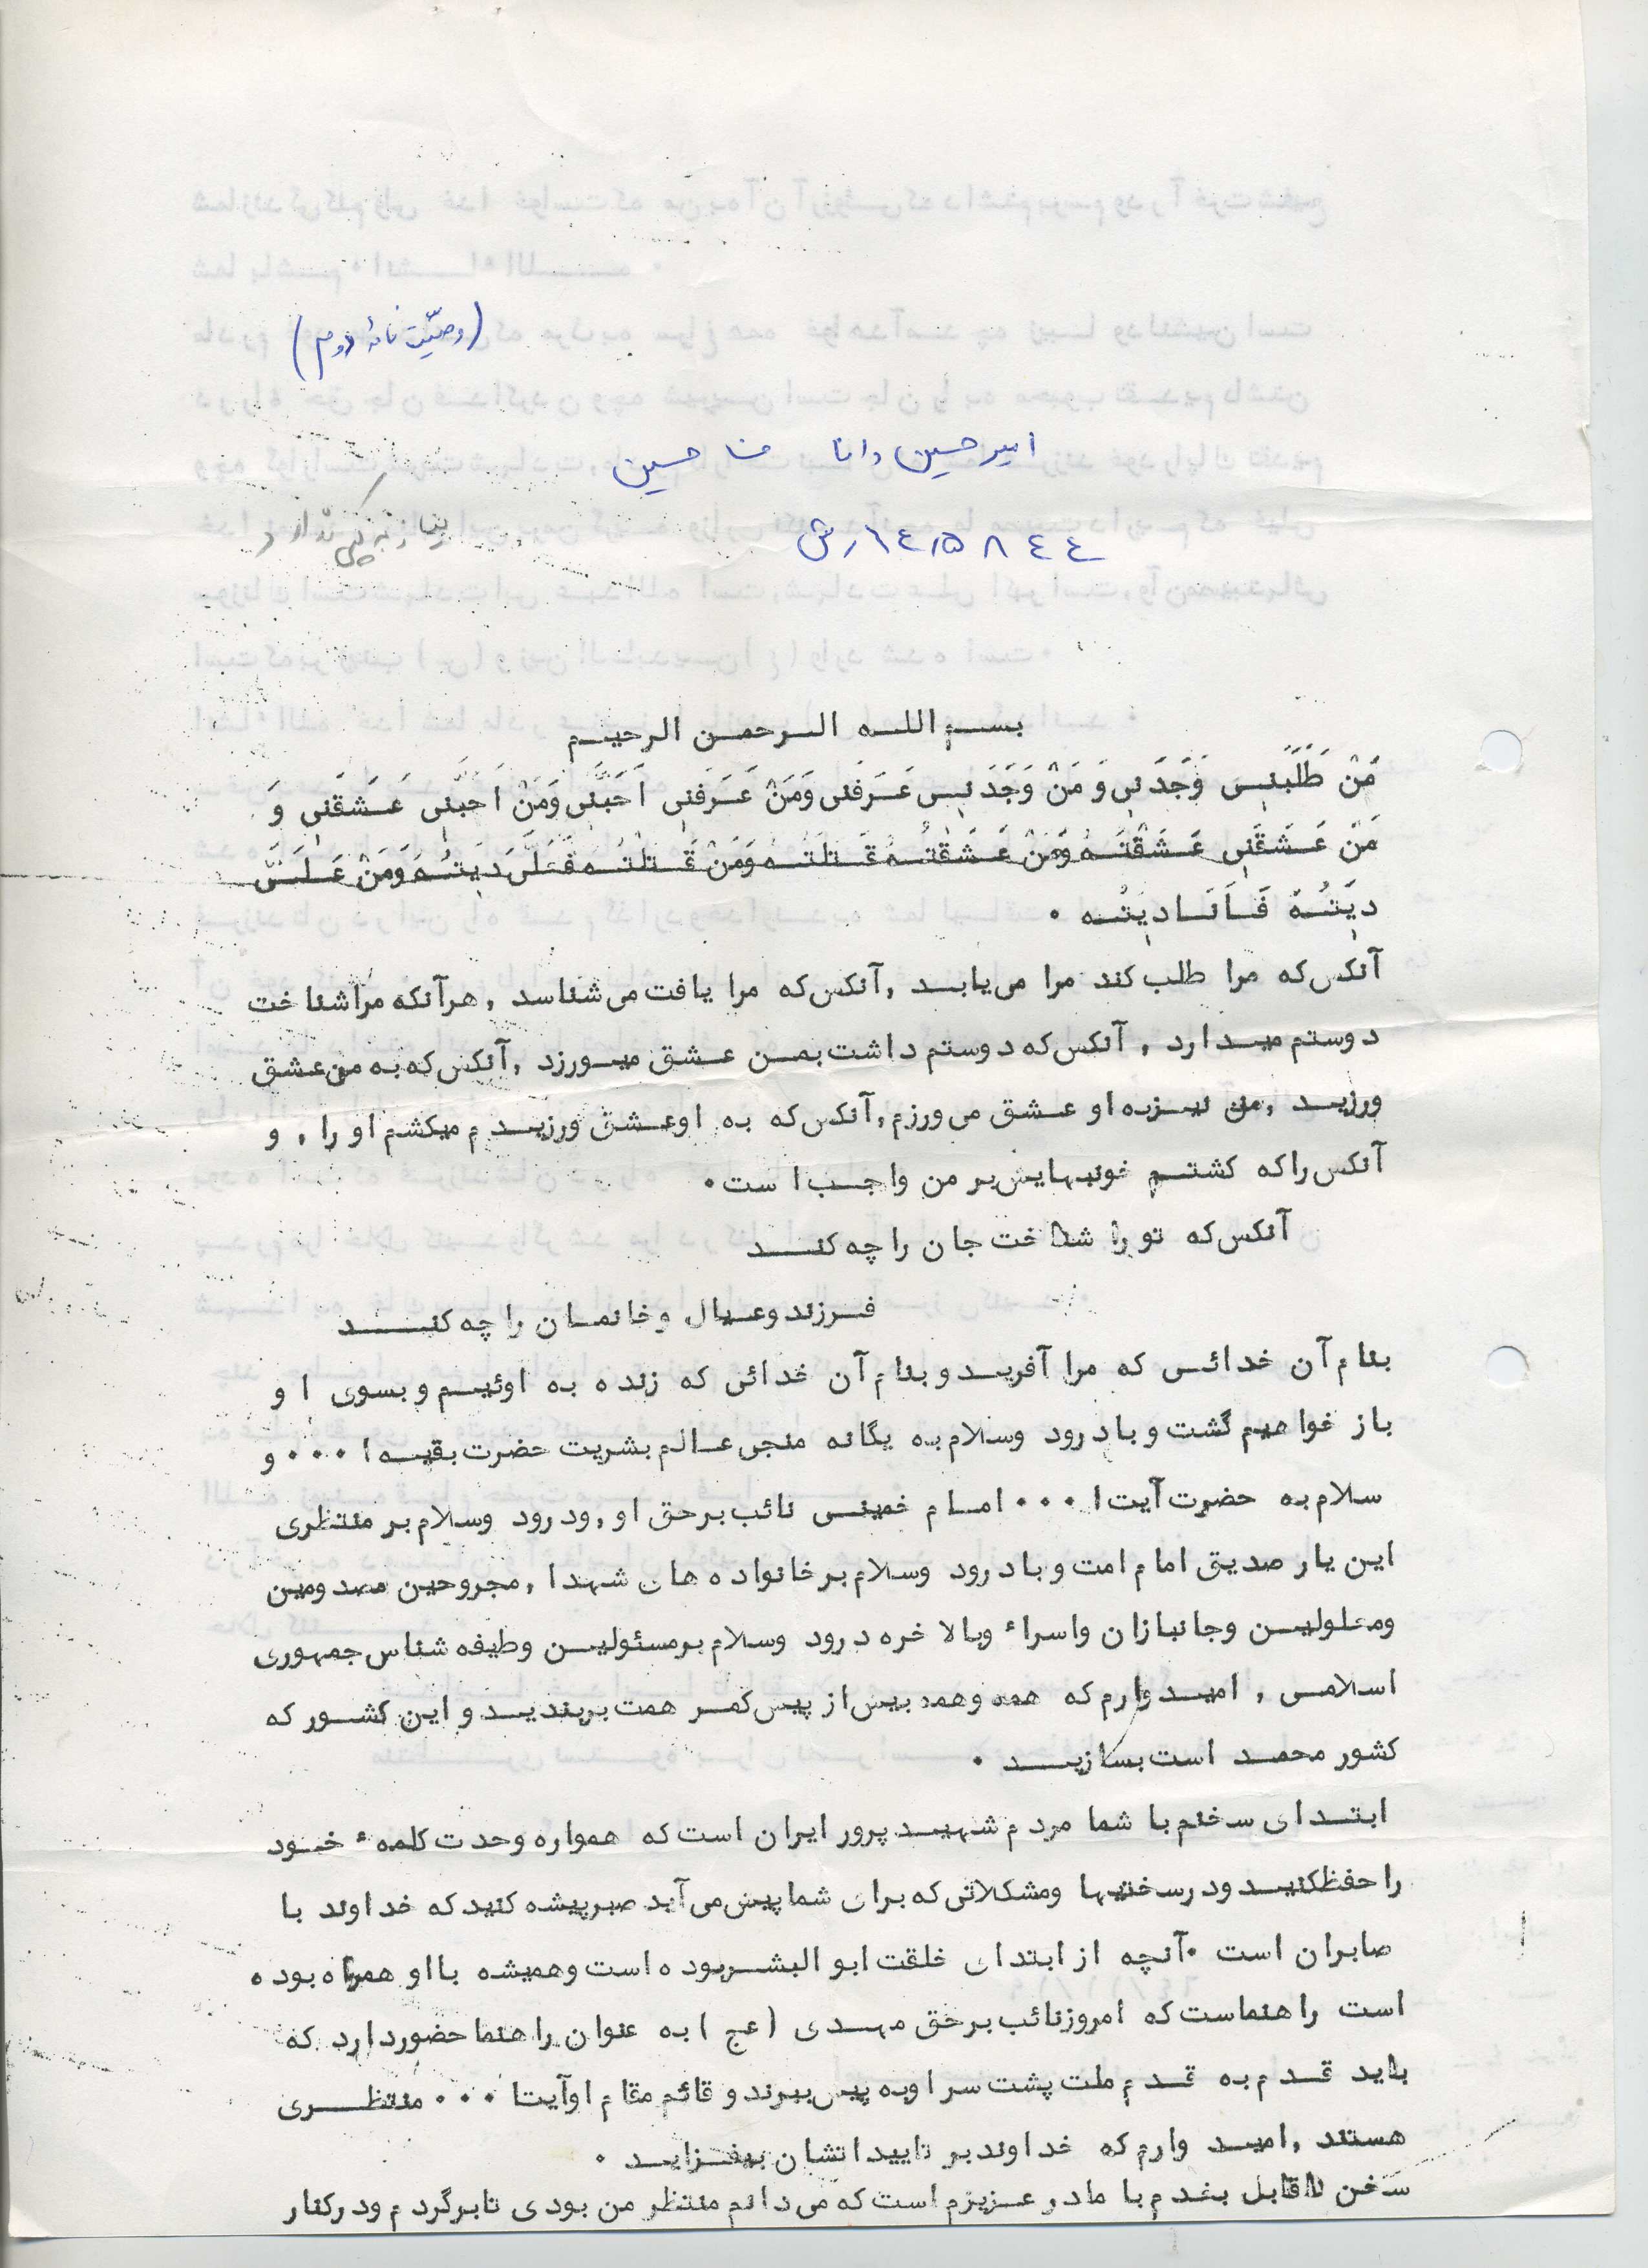 (وصیّت نامهٔ دوم)
امیر حسین دانا حسین
۱۴۱۵۸۴۴ رش
نیاز به کپی ندارد
بسم اللـه الـرحمـن الرحیـم
مَنْ طَلَبَنِی وَجَدَنِی وَ مَنْ وَجَدَنِی عَرَفَنی وَمَنْ عَرَفَنِی اَحَبَّنِی وَمَنْ اَحَبَّنِی عَشَقَنِی وَ
مَنْ عَشَقَنِی عَشَقْتَهُ وَمَنْ عَشَقْتُهُ قَتَلْتُهُ وَمَنْ قَتَلْتُهُ فَعَلَیَّ دِیَتُهُ وَمَنْ عَلَیَّ
دِیَتُهُ فَاَنَا دِیَتُه .
آنکس که مرا طلب کند مرا می‌یابد ,آنکس که مرا یافت می‌شناسد ,هرآنکه مرا شناخت
دوستم میدارد , آنکس که دوستم داشت بمن عشق میورزد ,آنکس که به من عشق
ورزید ,من نیزبه او عشق می‌ورزم ,آنکس که به اوعشق ورزیدم میکشم او را , و
آنکس را که کشتم خونبهایش بر من واجب است.
آنکس که تو را شناخت جان را چه کند
فرزند وعیال وخانمان را چه کند
بنام آن خدائی که مرا آفرید و بنام آن خدائی که زنده به اوئیم و بسوی او
باز خواهیم گشت و با درود وسلام به یگانه منجی عالم بشریت حضرت بقیه ا ... و
سلام به حضرت آیت ا ... امام خمینی نائب برحق او ,ودرود وسلام بر منتظری
این یار صدیق امام امت و با درود وسلام بر خانواده های شهدا ,مجروحین مصدومین
ومعلولین وجانبازان واسراء وبالاخره درود وسلام برمسئولین وظیفه شناس جمهوری
اسلامی , امیدوارم که همه وهمه بیش از پیش کمر همت بربندید و این کشور که
کشور محمد است بسازید .
ابتدای سخنم با شما مردم شهید پرور ایران است که همواره وحدت کلمهء خود
را حفظ کنید ودر سختیها ومشکلاتی که برای شما پیش می‌آید صبر پیشه کنید که خداوند با
صابران است .آنچه از ابتدای خلقت ابوالبشر بوده است وهمیشه با او همراه بوده
است راهنماست که امروز نائب برحق مهدی (عج )به عنوان راهنما حضور دارد که
باید قدم به قدم ملت پشت سر اوبه پیش ببرند و قائم مقام اوآیت ا ... منتظری
هستند ,امید وارم که خداوند بر تاییداتشان بیفزاید .
سخن ناقابل بعدم با مادر عزیزم است که می‌دانم منتظر من بودی تا برگردم ودرکنار